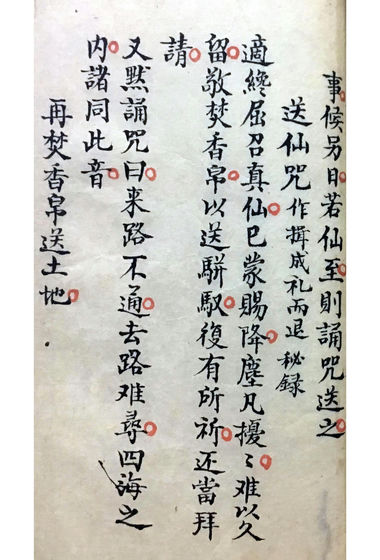 事候另日若仙至則誦咒送之
送仙咒 作揖成礼而退 秘録
適纔屈召真仙已蒙賜降塵凡擾〻难以久
留敬焚香帛以送駢馭復有所祈还當拜
請
又默誦咒曰来路不通去路难尋四海之
内諸同此音
再焚香帛送土地